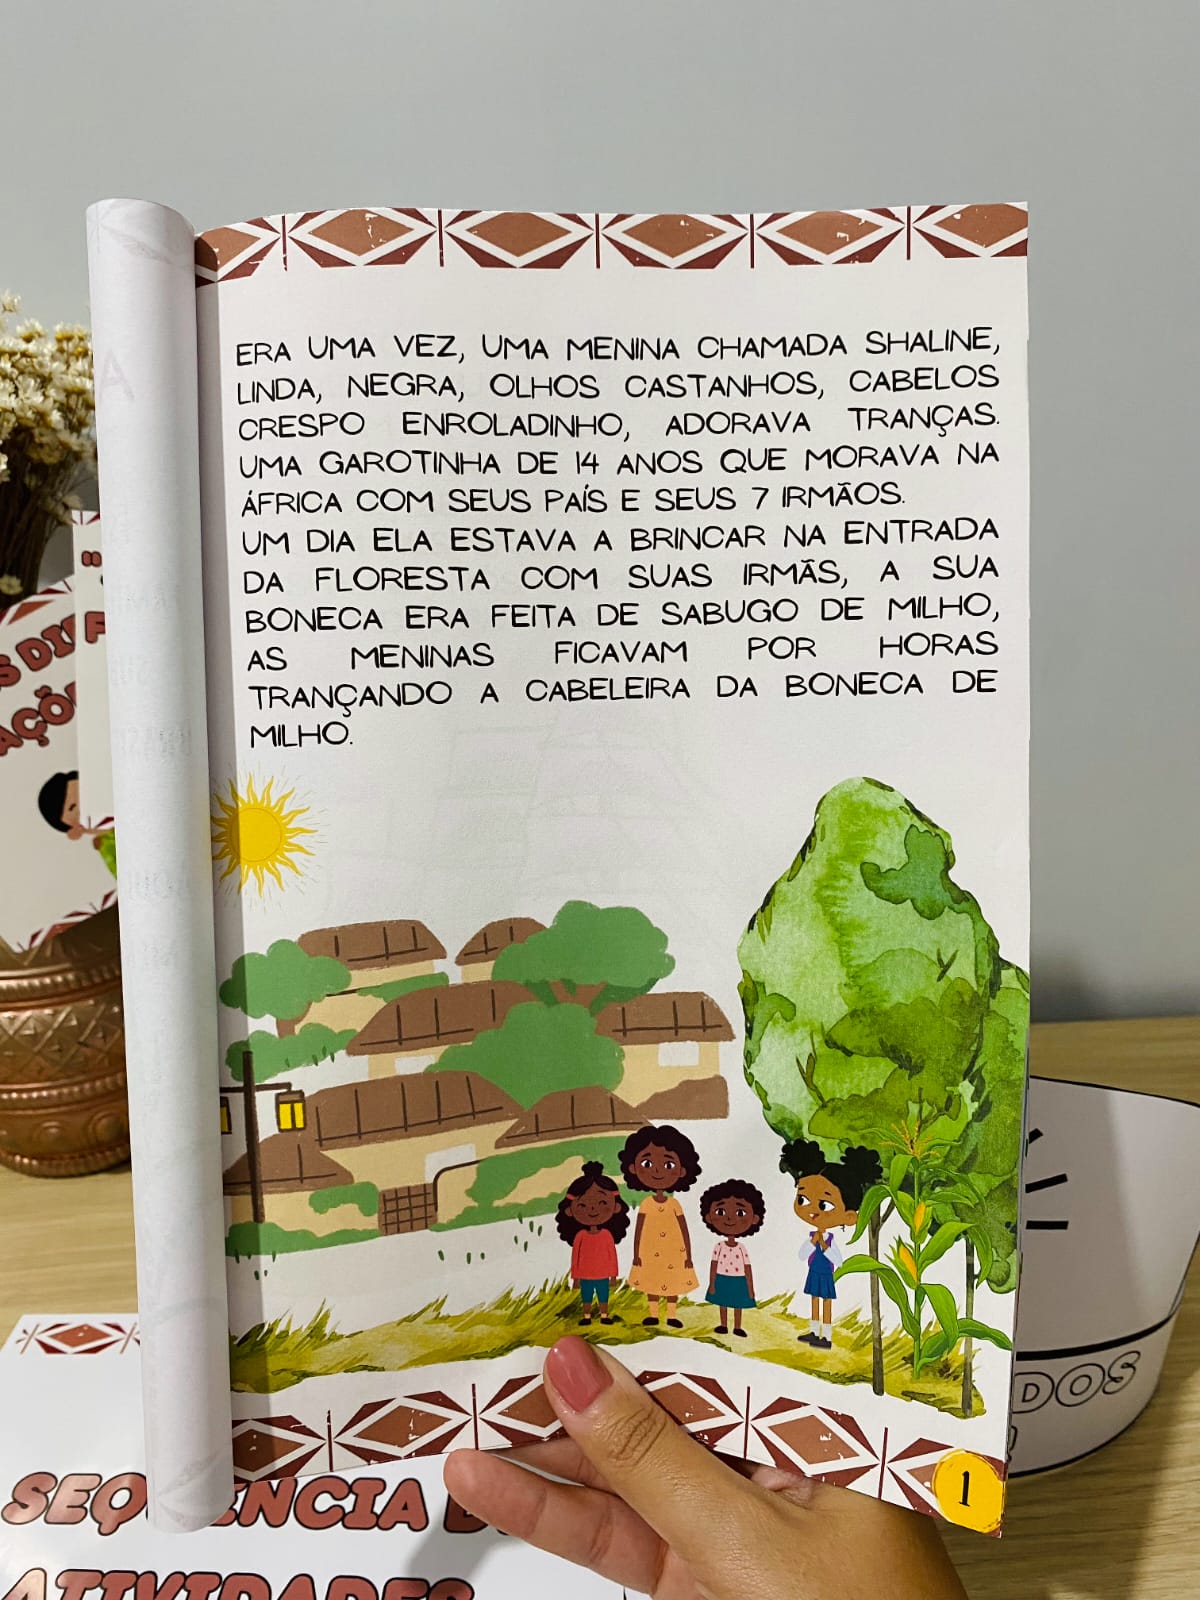 ERA UMA VEZ, UMA MENINA CHAMADA SHALINE,
LINDA, NEGRA, OLHOS CASTANHOS, CABELOS
CRESPO ENROLADINHO, ADORAVA TRANÇAS.
UMA GAROTINHA DE 14 ANOS QUE MORAVA NA
ÁFRICA COM SEUS PAÍS E SEUS 7 IRMÃOS.
UM DIA ELA ESTAVA A BRINCAR NA ENTRADA
DA FLORESTA COM SUAS IRMÃS, A SUA
BONECA ERA FEITA DE SABUGO DE MILHO,
AS MENINAS FICAVAM POR HORAS
TRANÇANDO A CABELEIRA DA BONECA DE
MILHO.
1
DOS
ATIVIDADES